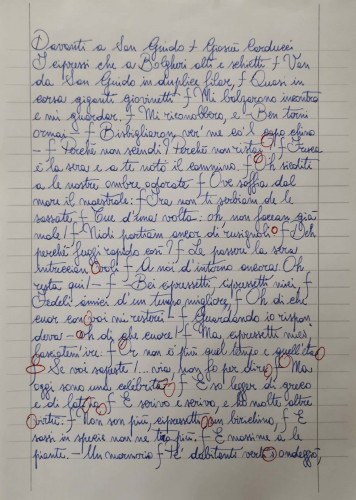 Davanti a San Guido + Giosuè Carducci
I cipressi che a Bolgheri alti e schietti f Van
da San Guido in duplice filar, f Quasi in
corsa giganti giovinetti f Mi balzarono incontro
e mi guardar. f Mi riconobbero, e - Ben torni
omai - f Bisbigliaron ver' me co'l capo chino
- f Perché non scendi? Perché non ristai? f Fresca
è la sera e a te noto il cammino. f Oh siediti
a le nostre ombre odorate f Ove soffia dal
mare il maestrale: f Ira non ti serbiam de le
sassate f Tue d'una volta: oh, non facean già
male! f Nidi portiam ancor di rusignoli: f Deh
perché fuggi rapido così? f Le passere la sera
intreccian voli f A noi d'intorno ancora. Oh
resta qui! - f - Bei cipressetti, cipressetti miei, f
Fedeli amici d'un tempo migliore, f Oh di che
cuor con voi mi resterei - f Guardando io rispon
deva - oh di che cuore! f Ma, cipressetti miei,
lasciatem'ire: f Or non è più quel tempo e quell'età
Se voi sapeste!... via, non fo per dire, f Ma
oggi sono una celebrità. f E so legger di greco
e di latino, f E scrivo e scrivo, e ho molte altre
virtù: f Non son più, cipressetti, un birichino, f E
sassi in specie non ne tiro più. f E massime a le
piante. - Un mormorio f Pe' dubitanti vertici ondeggiò,